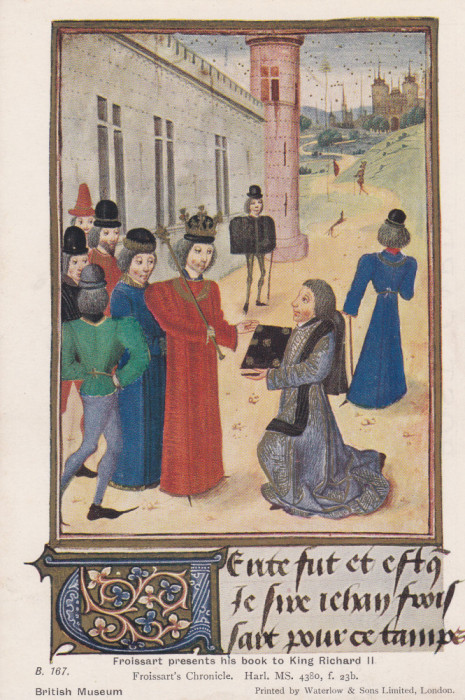 Erite fut et est q̃
Je sire iehan frois
sart pour ce tamps
Froissart presents his book to King Richard II
B. 167.
Froissart's Chronicle. Harl. MS. 4380, f. 23b.
British Museum
Printed by Waterlow & Sons Limited, London.